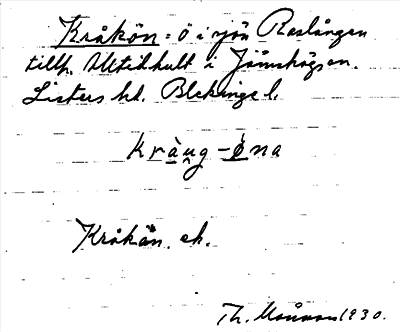 Kråkön = ö i sjön Raslången
tillh. Ulvshult i Jämshögs sn.
Listers hd. Blekinge l.
kràug-ø̀na
Kråkön. ek.
Th. Månsson 1930.